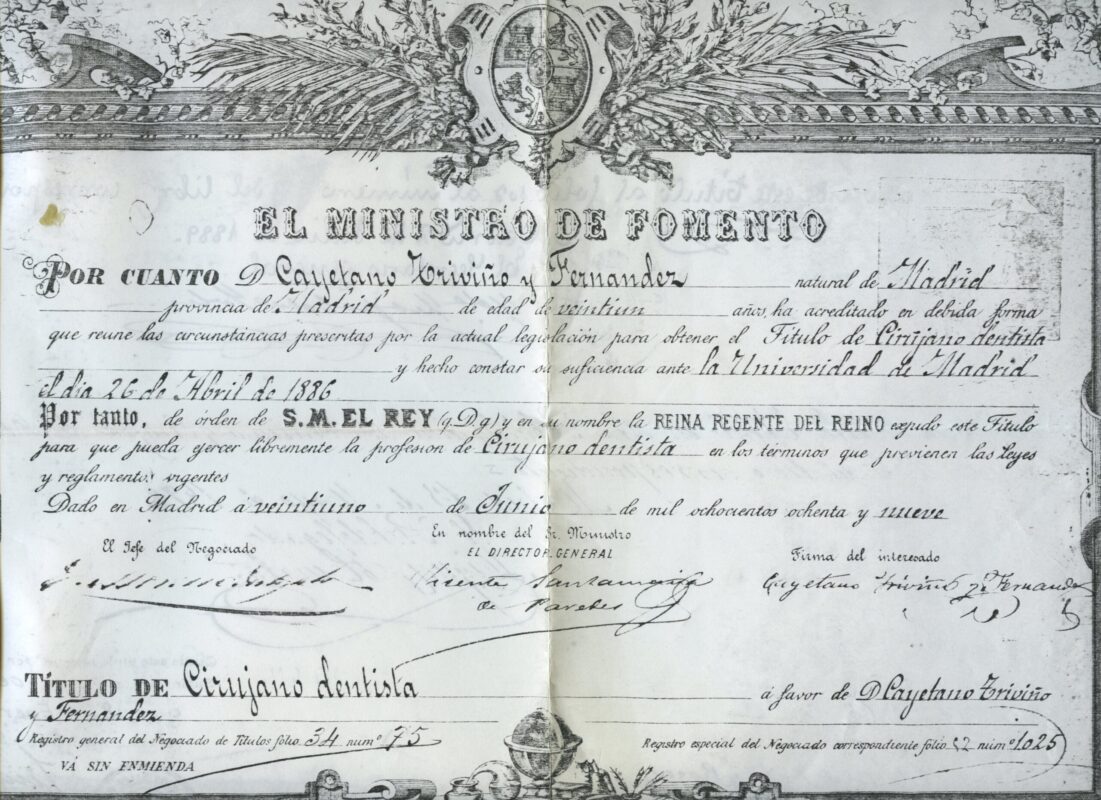 EL MINISTRO DE FOMENTO
POR CUANTO D Cayetano Triviño y Fernandez natural de Madrid
provincia de Madrid de edad de veintiun años, ha acreditado en debida forma
que reune las circunstancias prescritas por la actual legislación para obtener el Título de Cirujano dentista
y hecho constar su suficiencia ante la Universidad de Madrid
el dia 26 de Abril de 1886
Por tanto, de órden de S.M. EL REY (q.D.g) y en su nombre la REINA REGENTE DEL REINO expido este Título
para que pueda ejercer libremente la profesion de Cirujano dentista en los términos que previenen las leyes
y reglamentos vigentes
Dado en Madrid á veintiuno de Junio de mil ochocientos ochenta y nueve
El Jefe del Negociado
En nombre del Sr. Ministro
EL DIRECTOR GENERAL
Firma del interesado
Vicente Santamaria
de Paredes
Cayetano Triviño y Fernandez
TÍTULO DE Cirujano dentista á favor de D Cayetano Triviño
y Fernandez
Registro general del Negociado de Títulos folio 34 numº 75
Registro especial del Negociado correspondiente folio 52 númº 1025
VÁ SIN ENMIENDA